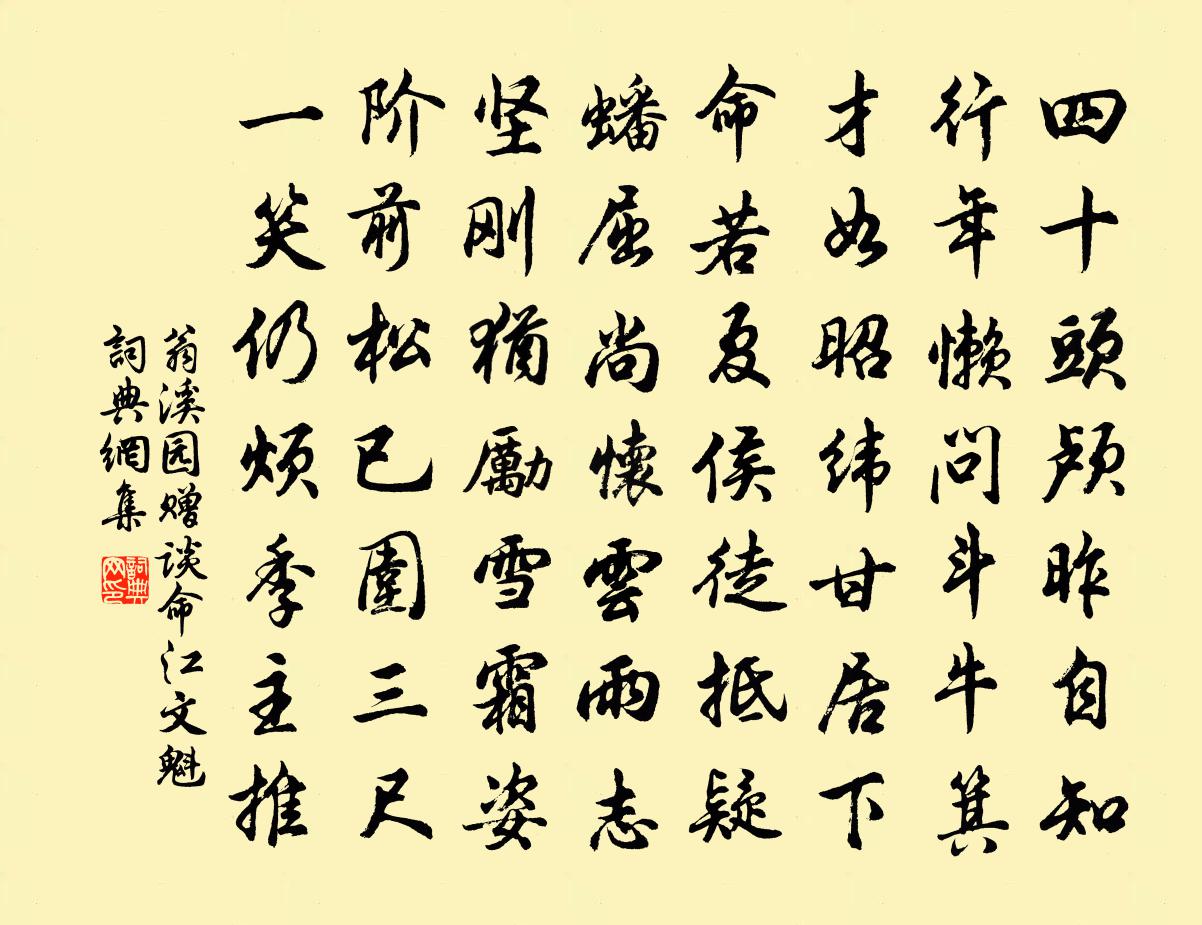 四十頭颅昨自知
行年懒問斗牛箕
才如昭纬甘居下
命若夏侯徒抵疑
蟠屈尚懷雲雨志
坚刚猶勵雪霜姿
阶前松已圍三尺
一笑仍烦季主推
翁溪园赠谈命江文魁
詞典網集
詞典网印